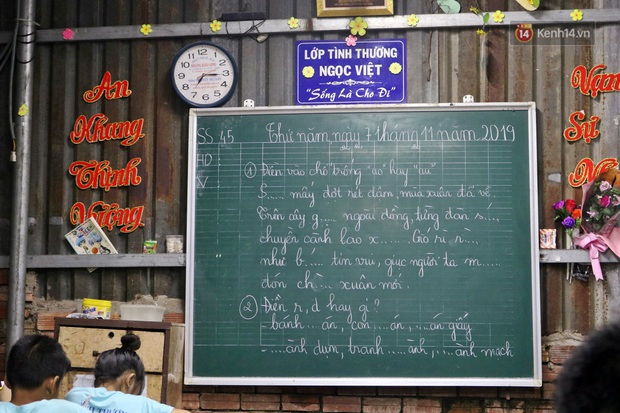 14 Kenh14.vn
LỚP TÌNH THƯƠNG
NGỌC VIỆT
"Sống Là Cho Đi"
An
Khang
Thịnh
Vượng
Vạn
Sự
SS 45
HD
V
Thứ năm, ngày 7 tháng 11 năm 2019
① Điền vào chỗ trống "ao" hay "au"
S..... mấy đợt rét đậm, mùa xuân đã về.
Trên cây g..... ngoài đồng, từng đàn s.....
chuyền cành lao x...... Gió rì r.....
như b..... tin vui, giục người ta m.....
đón ch..... xuân mới.
② Điền r, d hay gi?
- bánh ....án, con ....án, ....án giấy
- ....ành dụm, tranh ....ành, ....ành mạch